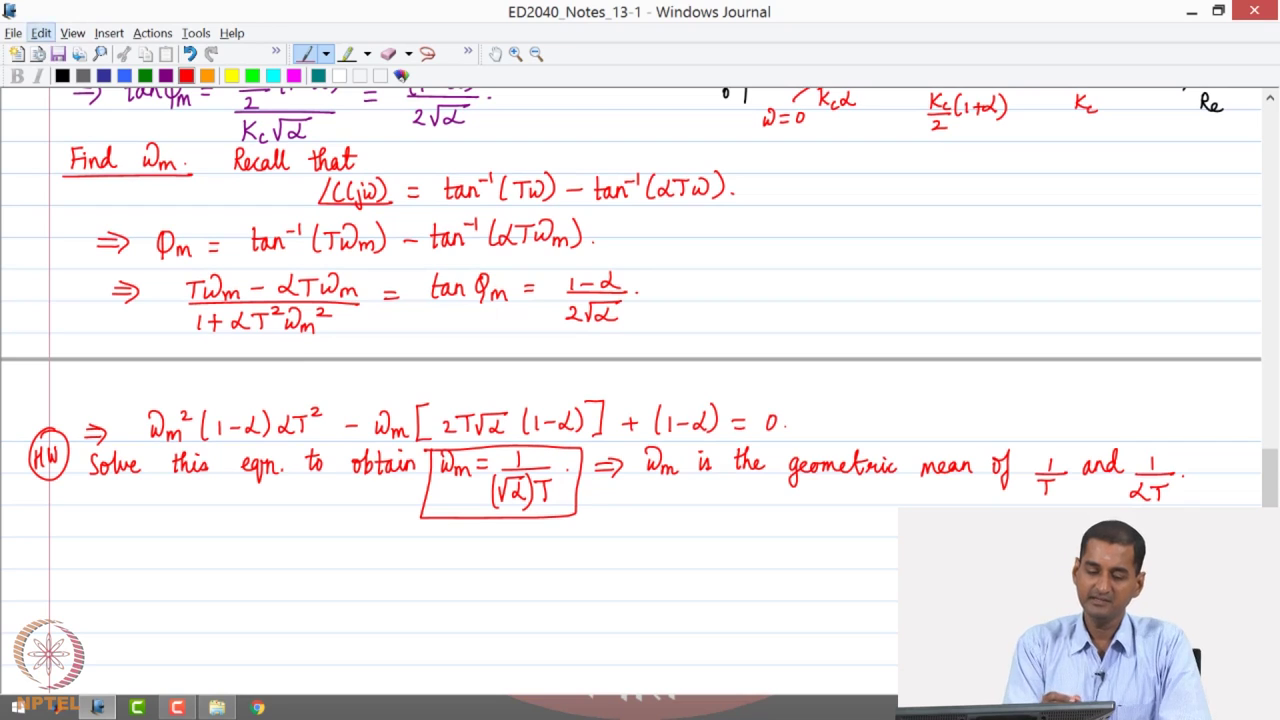 ED2040_Notes_13-1 - Windows Journal
File Edit View Insert Actions Tools Help
B I
⇒ tan φm = 2 / Kc√α = / 2√α .
0 ω=0 Kcα Kc/2 (1+α) Kc Re
Find ωm. Recall that
∠C(jω) = tan⁻¹(Tω) − tan⁻¹(αTω).
⇒ φm = tan⁻¹(Tωm) − tan⁻¹(αTωm).
⇒ (Tωm − αTωm) / (1 + αT²ωm²) = tan φm = (1−α) / (2√α) .
⇒ ωm²(1−α)αT² − ωm[2T√α (1−α)] + (1−α) = 0.
HW Solve this eqn. to obtain ωm = 1 / (√α)T . ⇒ ωm is the geometric mean of 1/T and 1/αT .
NPTEL